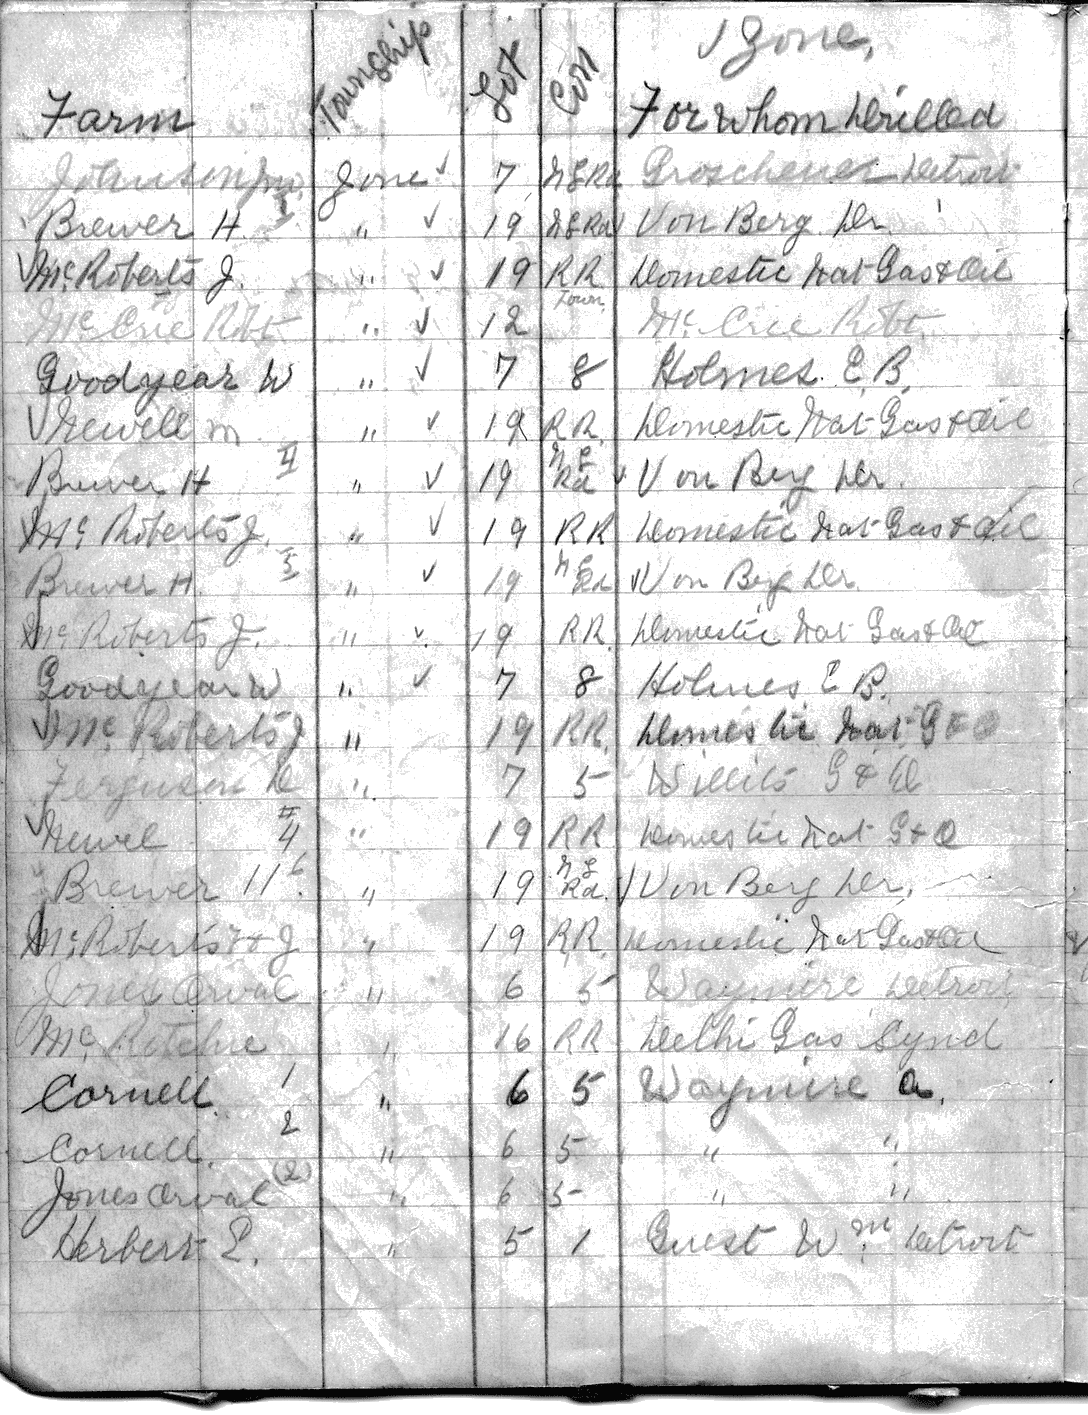 Zone,
Farm Township Lot Con For Whom Drilled
Johnson Zone ✓ 7 N L Rd Detroit
Brewer H. I " ✓ 19 N L Rd Von Berg Dr.
✓ Mc Roberts J. " ✓ 19 RR Domestic Nat Gas & Oil
Mc Crie Robt " ✓ 12 Town Mc Crie Robt.
Goodyear W " ✓ 7 8 Holmes E. B.
✓ Newell m " ✓ 19 RR. Domestic Nat Gas & Oil
Brewer H II " ✓ 19 N L Rd ✓ Von Berg Dr.
✓ Mc Roberts J. " ✓ 19 RR Domestic Nat Gas & Oil
Brewer H. " ✓ 19 Rd ✓ Von Berg Dr.
Mc Roberts J. " ✓ 19 RR. Domestic Nat Gas & Oil
Goodyear W " ✓ 7 8 Holmes E B.
✓ Mc Roberts J " 19 RR. Domestic Nat G & O
Ferguson D " 7 5 Willits G & O
✓ Newel # 4 " 19 RR Domestic Nat G & O
Brewer H 6. " 19 N L Rd. ✓ Von Berg Dr.
Mc Roberts J " 19 RR. Domestic Nat Gas & Oil
Jones Orval " 6 5 Waymire Detroit
Mc Ritchie " 16 RR Delhi Gas Synd
Cornell. 1 " 6 5 Waymire A.
Cornell. 2 " 6 5 " "
Jones Orval (2) " 6 5 " "
Herbert E. " 5 1 Guest Wm. Detroit